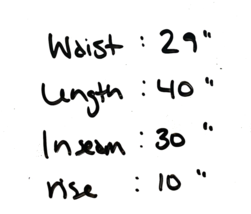 Waist : 29"
Length : 40"
Inseam : 30"
rise : 10"